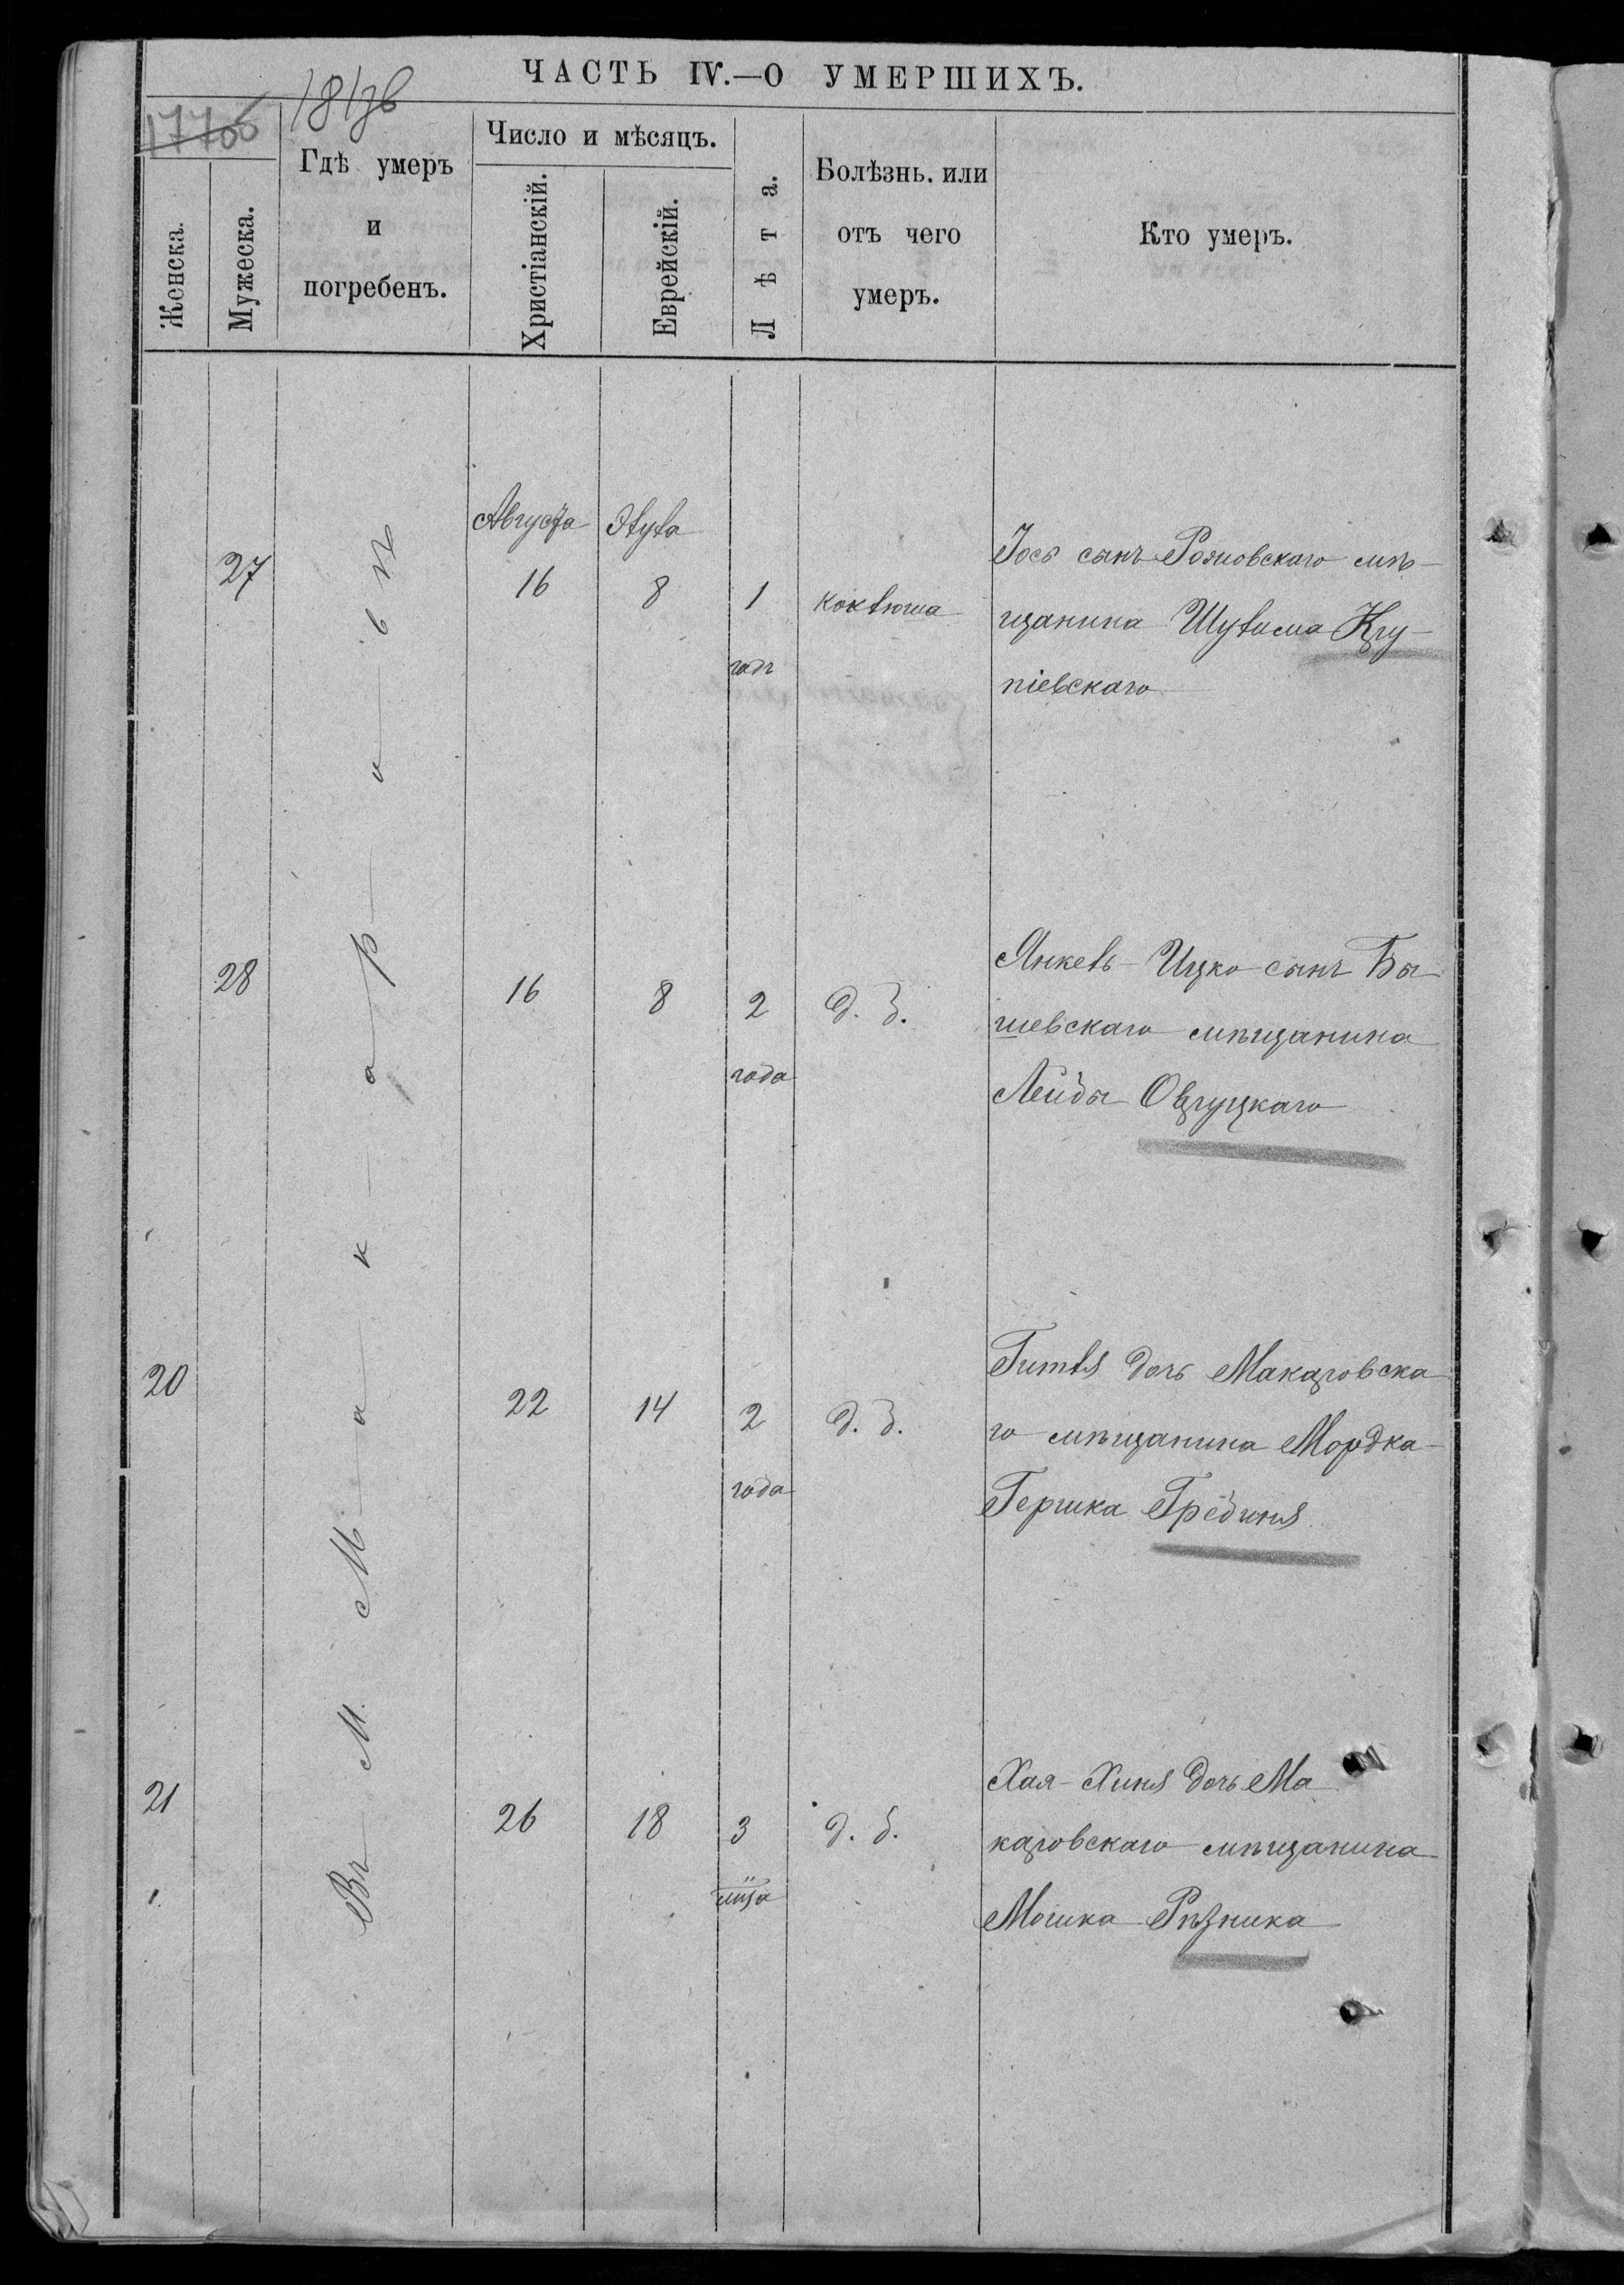 ЧАСТЬ IV.—О УМЕРШИХЪ.
1770б
181зв
Женска.
Мужеска.
Гдѣ умеръ
и
погребенъ.
Число и мѣсяцъ.
Христіанскій.
Еврейскій.
Лѣта.
Болѣзнь. или
отъ чего
умеръ.
Кто умеръ.
Въ М. Макаровѣ
Августа
27
16
8
1
годъ
коклюша
Іось сынъ Рожовскаго мѣ-
щанина Шулима Кру-
піевскаго
28
16
8
2
года
д. з.
Янкель-Ицко сынъ Бы-
шевскаго мѣщанина
Лейбы Овруцкаго
20
22
14
2
года
д. з.
Гитля дочь Макаровска
го мѣщанина Мордка-
Гершка
21
26
18
3
д. з.
Хая-Хиня дочь Ма
каровскаго мѣщанина
Мошка Рѣзника